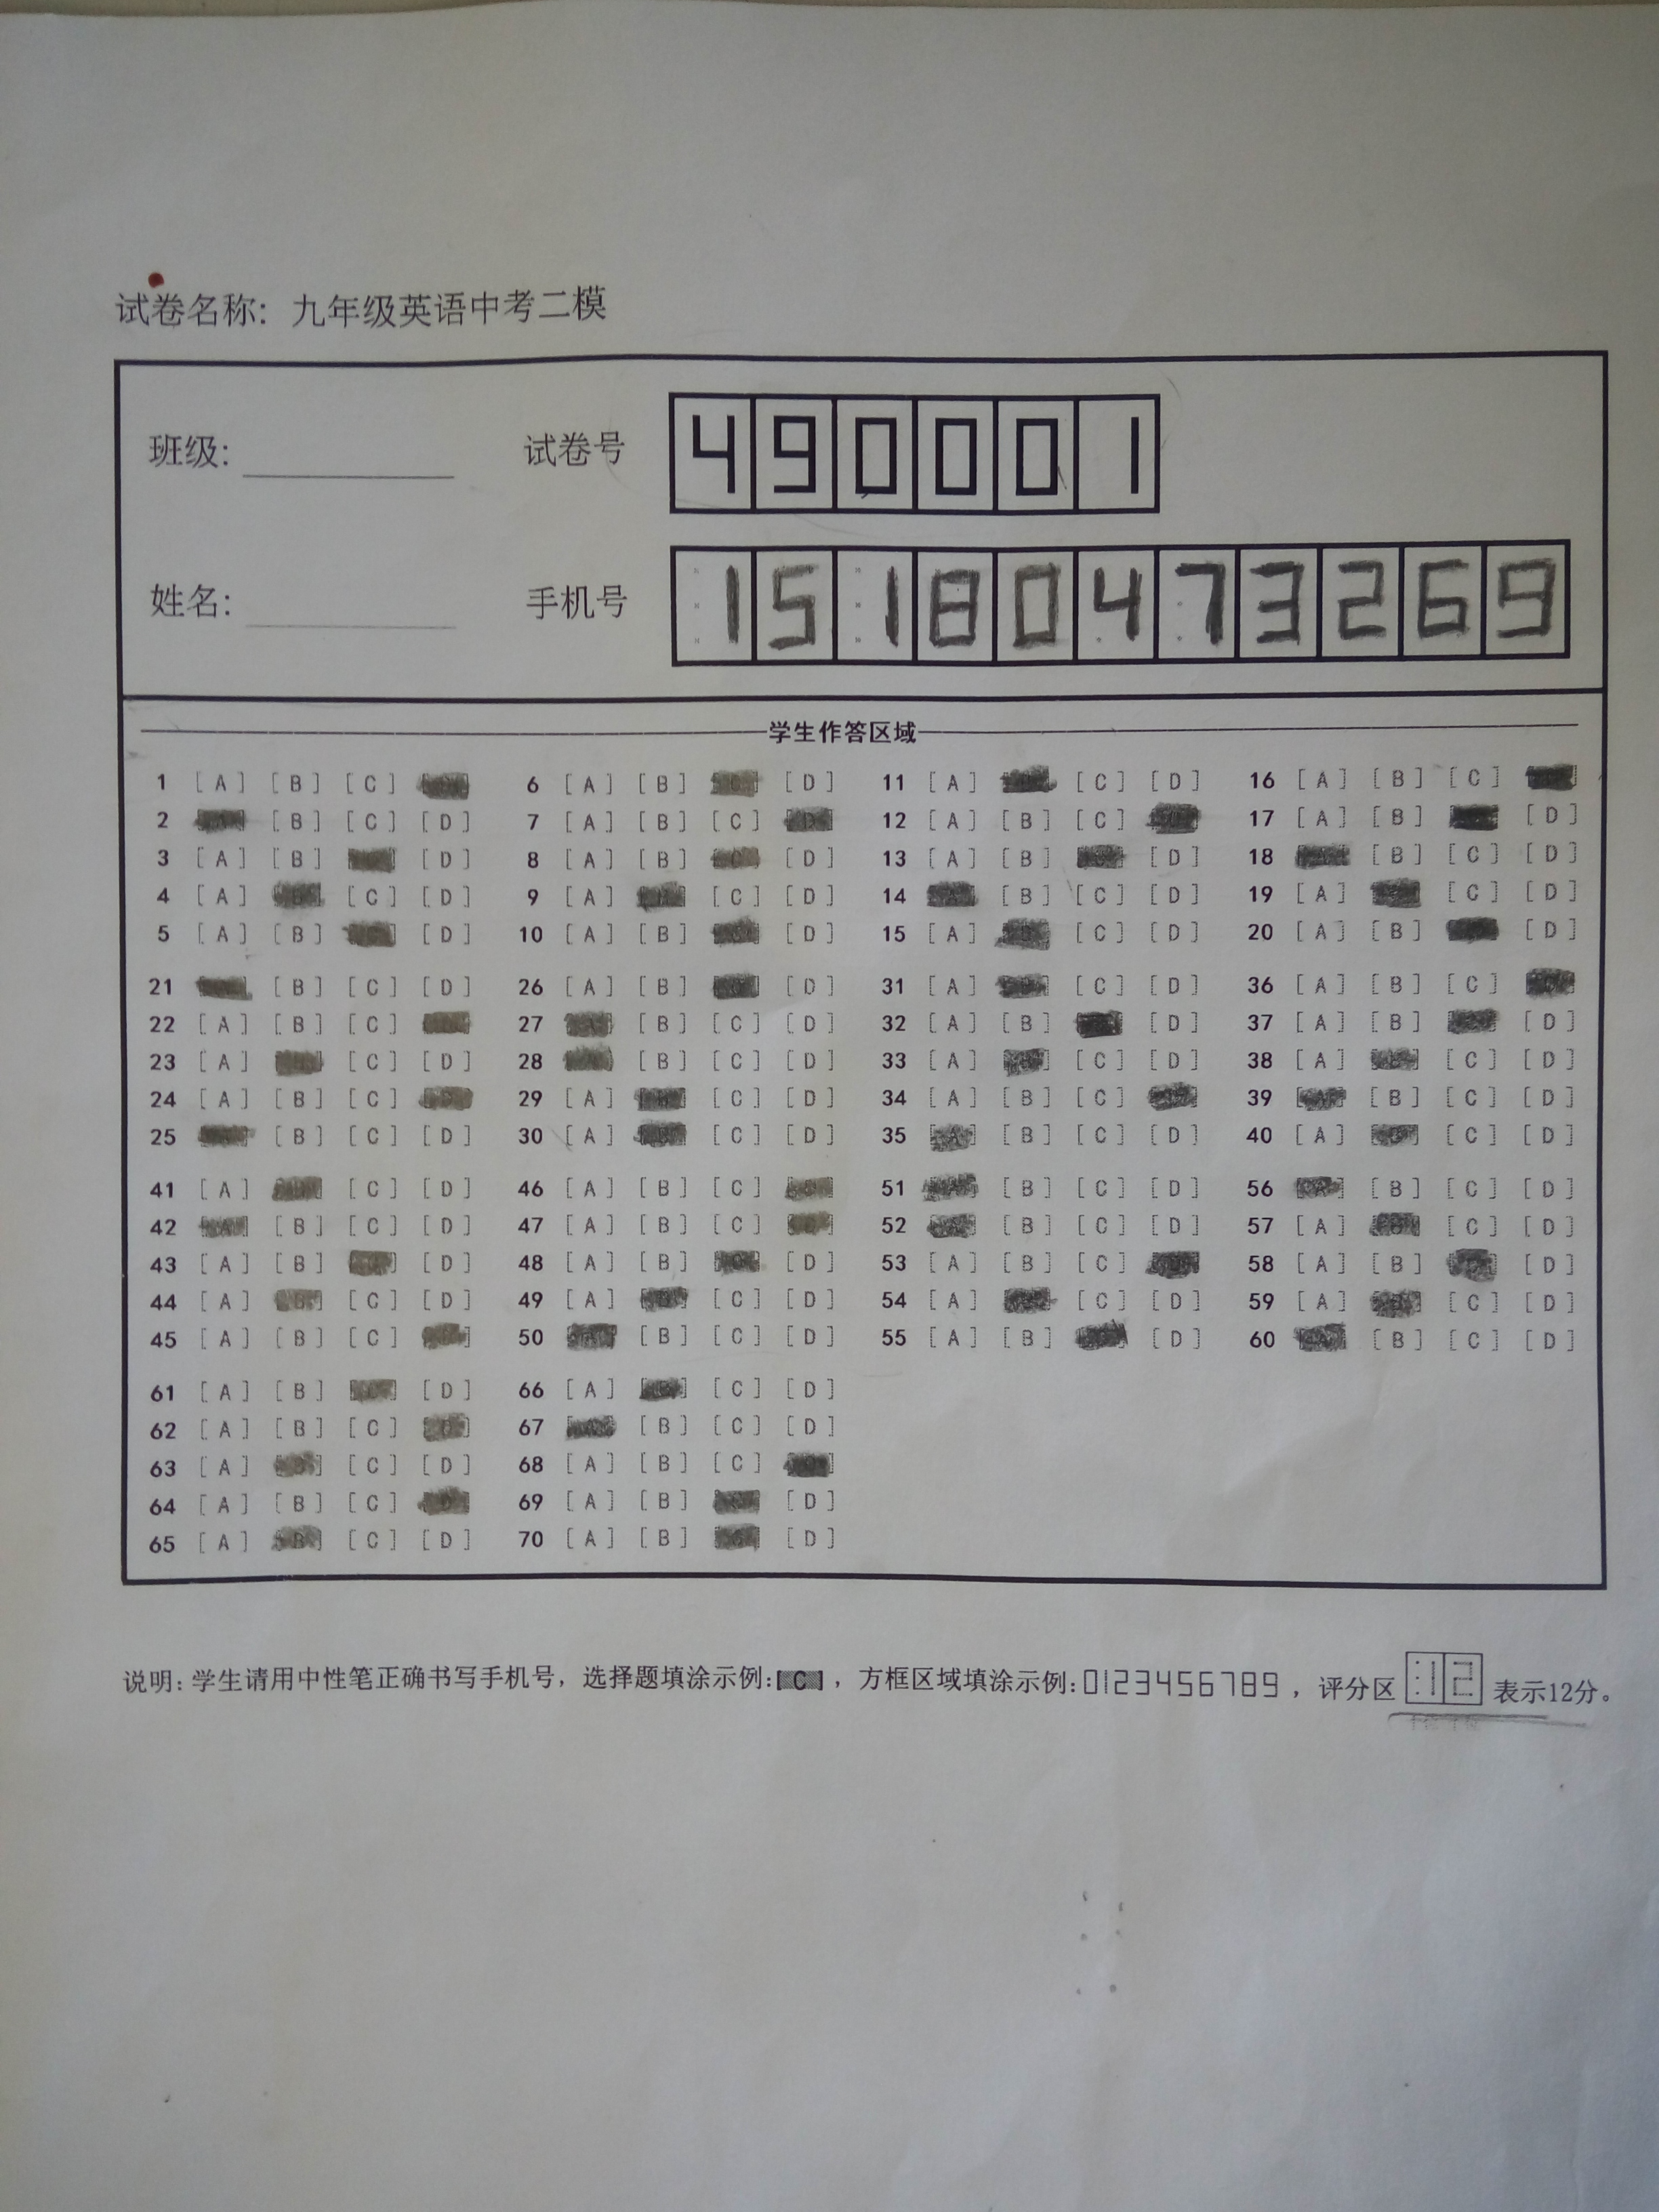 试卷名称: 九年级英语中考二模
班级: 试卷号 490001
姓名: 手机号 15180473269
学生作答区域
1 [A] [B] [C] 6 [A] [B] [D] 11 [A] [C] [D] 16 [A] [B] [C]
2 [B] [C] [D] 7 [A] [B] [C] 12 [A] [B] [C] 17 [A] [B] [D]
3 [A] [B] [D] 8 [A] [B] [C] [D] 13 [A] [B] [D] 18 [B] [C] [D]
4 [A] [C] [D] 9 [A] [C] [D] 14 [B] [C] [D] 19 [A] [C] [D]
5 [A] [B] [D] 10 [A] [B] [D] 15 [A] [C] [D] 20 [A] [B] [D]
21 [B] [C] [D] 26 [A] [B] [D] 31 [A] [C] [D] 36 [A] [B] [C]
22 [A] [B] [C] 27 [B] [C] [D] 32 [A] [B] [D] 37 [A] [B] [D]
23 [A] [C] [D] 28 [B] [C] [D] 33 [A] [C] [D] 38 [A] [C] [D]
24 [A] [B] [C] 29 [A] [C] [D] 34 [A] [B] [C] 39 [B] [C] [D]
25 [B] [C] [D] 30 [A] [C] [D] 35 [A] [B] [C] [D] 40 [A] [C] [D]
41 [A] [C] [D] 46 [A] [B] [C] 51 [B] [C] [D] 56 [B] [C] [D]
42 [B] [C] [D] 47 [A] [B] [C] 52 [B] [C] [D] 57 [A] [C] [D]
43 [A] [B] [D] 48 [A] [B] [D] 53 [A] [B] [C] 58 [A] [B] [D]
44 [A] [C] [D] 49 [A] [C] [D] 54 [A] [C] [D] 59 [A] [C] [D]
45 [A] [B] [C] 50 [B] [C] [D] 55 [A] [B] [D] 60 [B] [C] [D]
61 [A] [B] [D] 66 [A] [C] [D]
62 [A] [B] [C] 67 [B] [C] [D]
63 [A] [C] [D] 68 [A] [B] [C]
64 [A] [B] [C] 69 [A] [B] [D]
65 [A] [C] [D] 70 [A] [B] [D]
说明: 学生请用中性笔正确书写手机号, 选择题填涂示例: [C] , 方框区域填涂示例: 0123456789 , 评分区 12 表示12分。